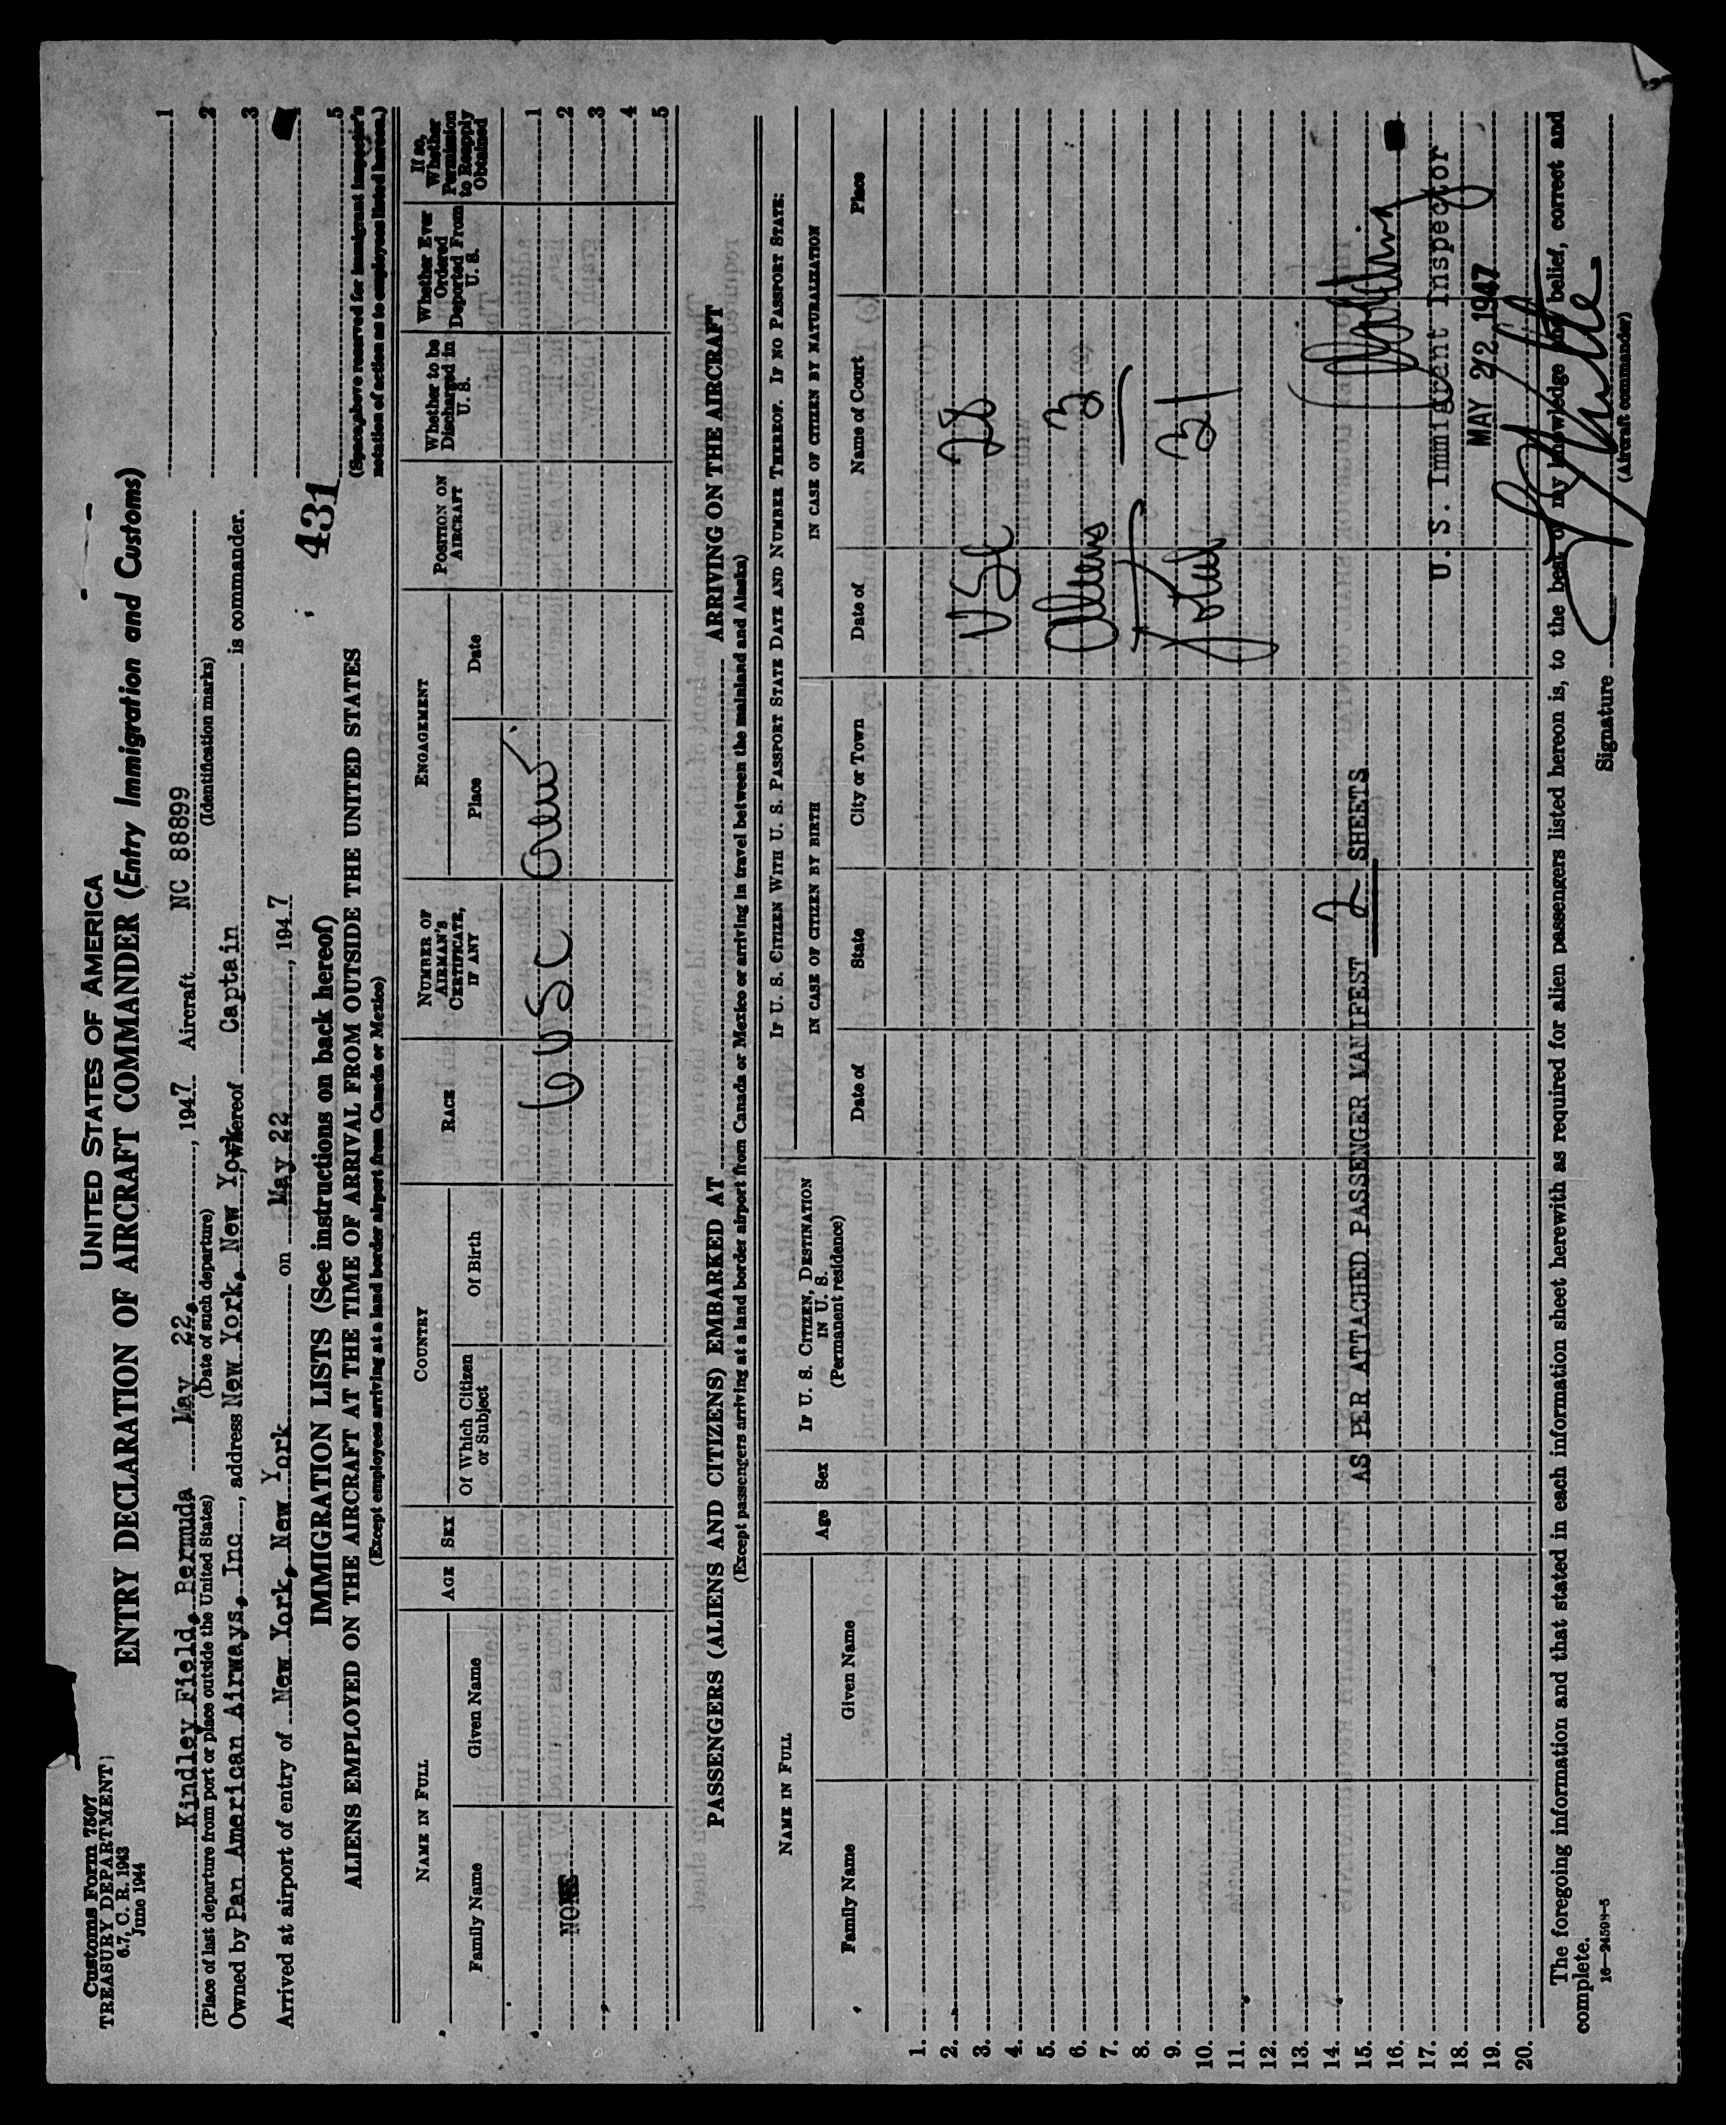 Customs Form 7507
TREASURY DEPARTMENT
6.7, C. R. 1943
June 1944
UNITED STATES OF AMERICA
ENTRY DECLARATION OF AIRCRAFT COMMANDER (Entry Immigration and Customs)
Kindley Field, Bermuda May 22, , 1947 Aircraft NC 88899
(Place of last departure from port or place outside the United States) (Date of such departure) (Identification marks)
Owned by Pan American Airways, Inc., address New York, New York, whereof Captain is commander.
Arrived at airport of entry of New York, New York on May 22 , 1947
431
1
2
3
5
(Space above reserved for immigrant inspector's
notation of action as to employees listed hereon.)
IMMIGRATION LISTS (See instructions on back hereof)
ALIENS EMPLOYED ON THE AIRCRAFT AT THE TIME OF ARRIVAL FROM OUTSIDE THE UNITED STATES
(Except employees arriving at a land border airport from Canada or Mexico)
NAME IN FULL
Family Name
Given Name
AGE
SEX
COUNTRY
Of Which Citizen or Subject
Of Birth
RACE
NUMBER OF AIRMAN'S CERTIFICATE, IF ANY
ENGAGEMENT
Place
Date
POSITION ON AIRCRAFT
Whether to be Discharged in U. S.
Whether Ever Ordered Deported From U. S.
If so, Whether Permission to Reapply Obtained
1
NONE 2
3
4
5
6 USC Crew
PASSENGERS (ALIENS AND CITIZENS) EMBARKED AT ARRIVING ON THE AIRCRAFT
(Except passengers arriving at a land border airport from Canada or Mexico or arriving in travel between the mainland and Alaska)
NAME IN FULL
Family Name
Given Name
Age
Sex
IF U. S. CITIZEN, DESTINATION IN U. S.
(Permanent residence)
IF U. S. CITIZEN WITH U. S. PASSPORT STATE DATE AND NUMBER THEREOF. IF NO PASSPORT STATE:
IN CASE OF CITIZEN BY BIRTH
Date of
State
City or Town
IN CASE OF CITIZEN BY NATURALIZATION
Date of
Name of Court
Place
1.
2.
3. USC 28
4.
5.
6. Aliens 3
7.
8.
9.
10. Total 31
11.
12.
13.
14.
15. AS PER ATTACHED PASSENGER MANIFEST 2 SHEETS
16.
17. U. S. Immigrant Inspector
18.
19. MAY 22 1947
20.
The foregoing information and that stated in each information sheet herewith as required for alien passengers listed hereon is, to the best of my knowledge and belief, correct and
complete.
Signature
(Aircraft commander)
16—24594-5